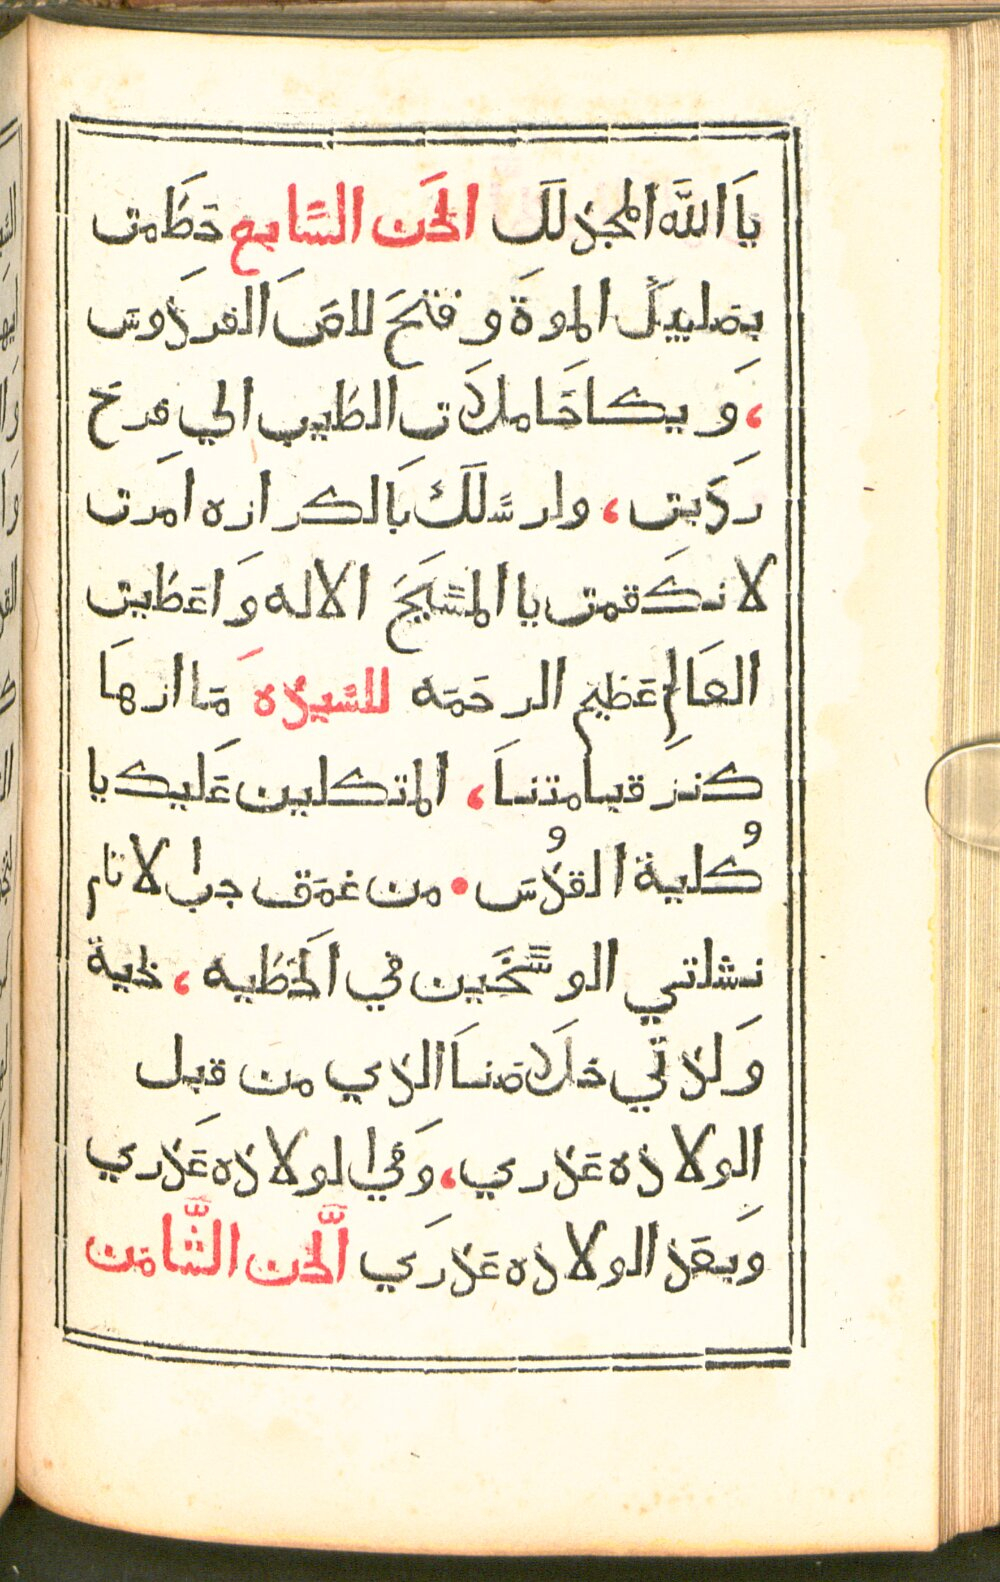 يَا اللَّه المجد لَك الحَن السَّابع حَطَمت
بصَليبكَ الموَة وفتحَ للاصَ الفردَوسَ
، وَبكا حَاملاَت الطيب الي فرحَ
ردَيت ، وارسَلَك بَالكرازه امَرت
لانكَ قمت يا المسَيَح الاله وَاعَطيت
العَالم عَظيم الرحَمَه للسَيده مَا ارهَا
كنز قيامتنَا ، المتكلين عَليك يا
كُلية القدُسَ • من عَمَق جب الاثام
نشلتي الوسَّخَين في الخَطيه ، لخية
وَلدتي خلاَصَنَا الدي من قبل
الولاده عَدري ، وَفي الولاده عَدري
وَبعَد الولاده عَدرَي الَّحن الثَّامَن